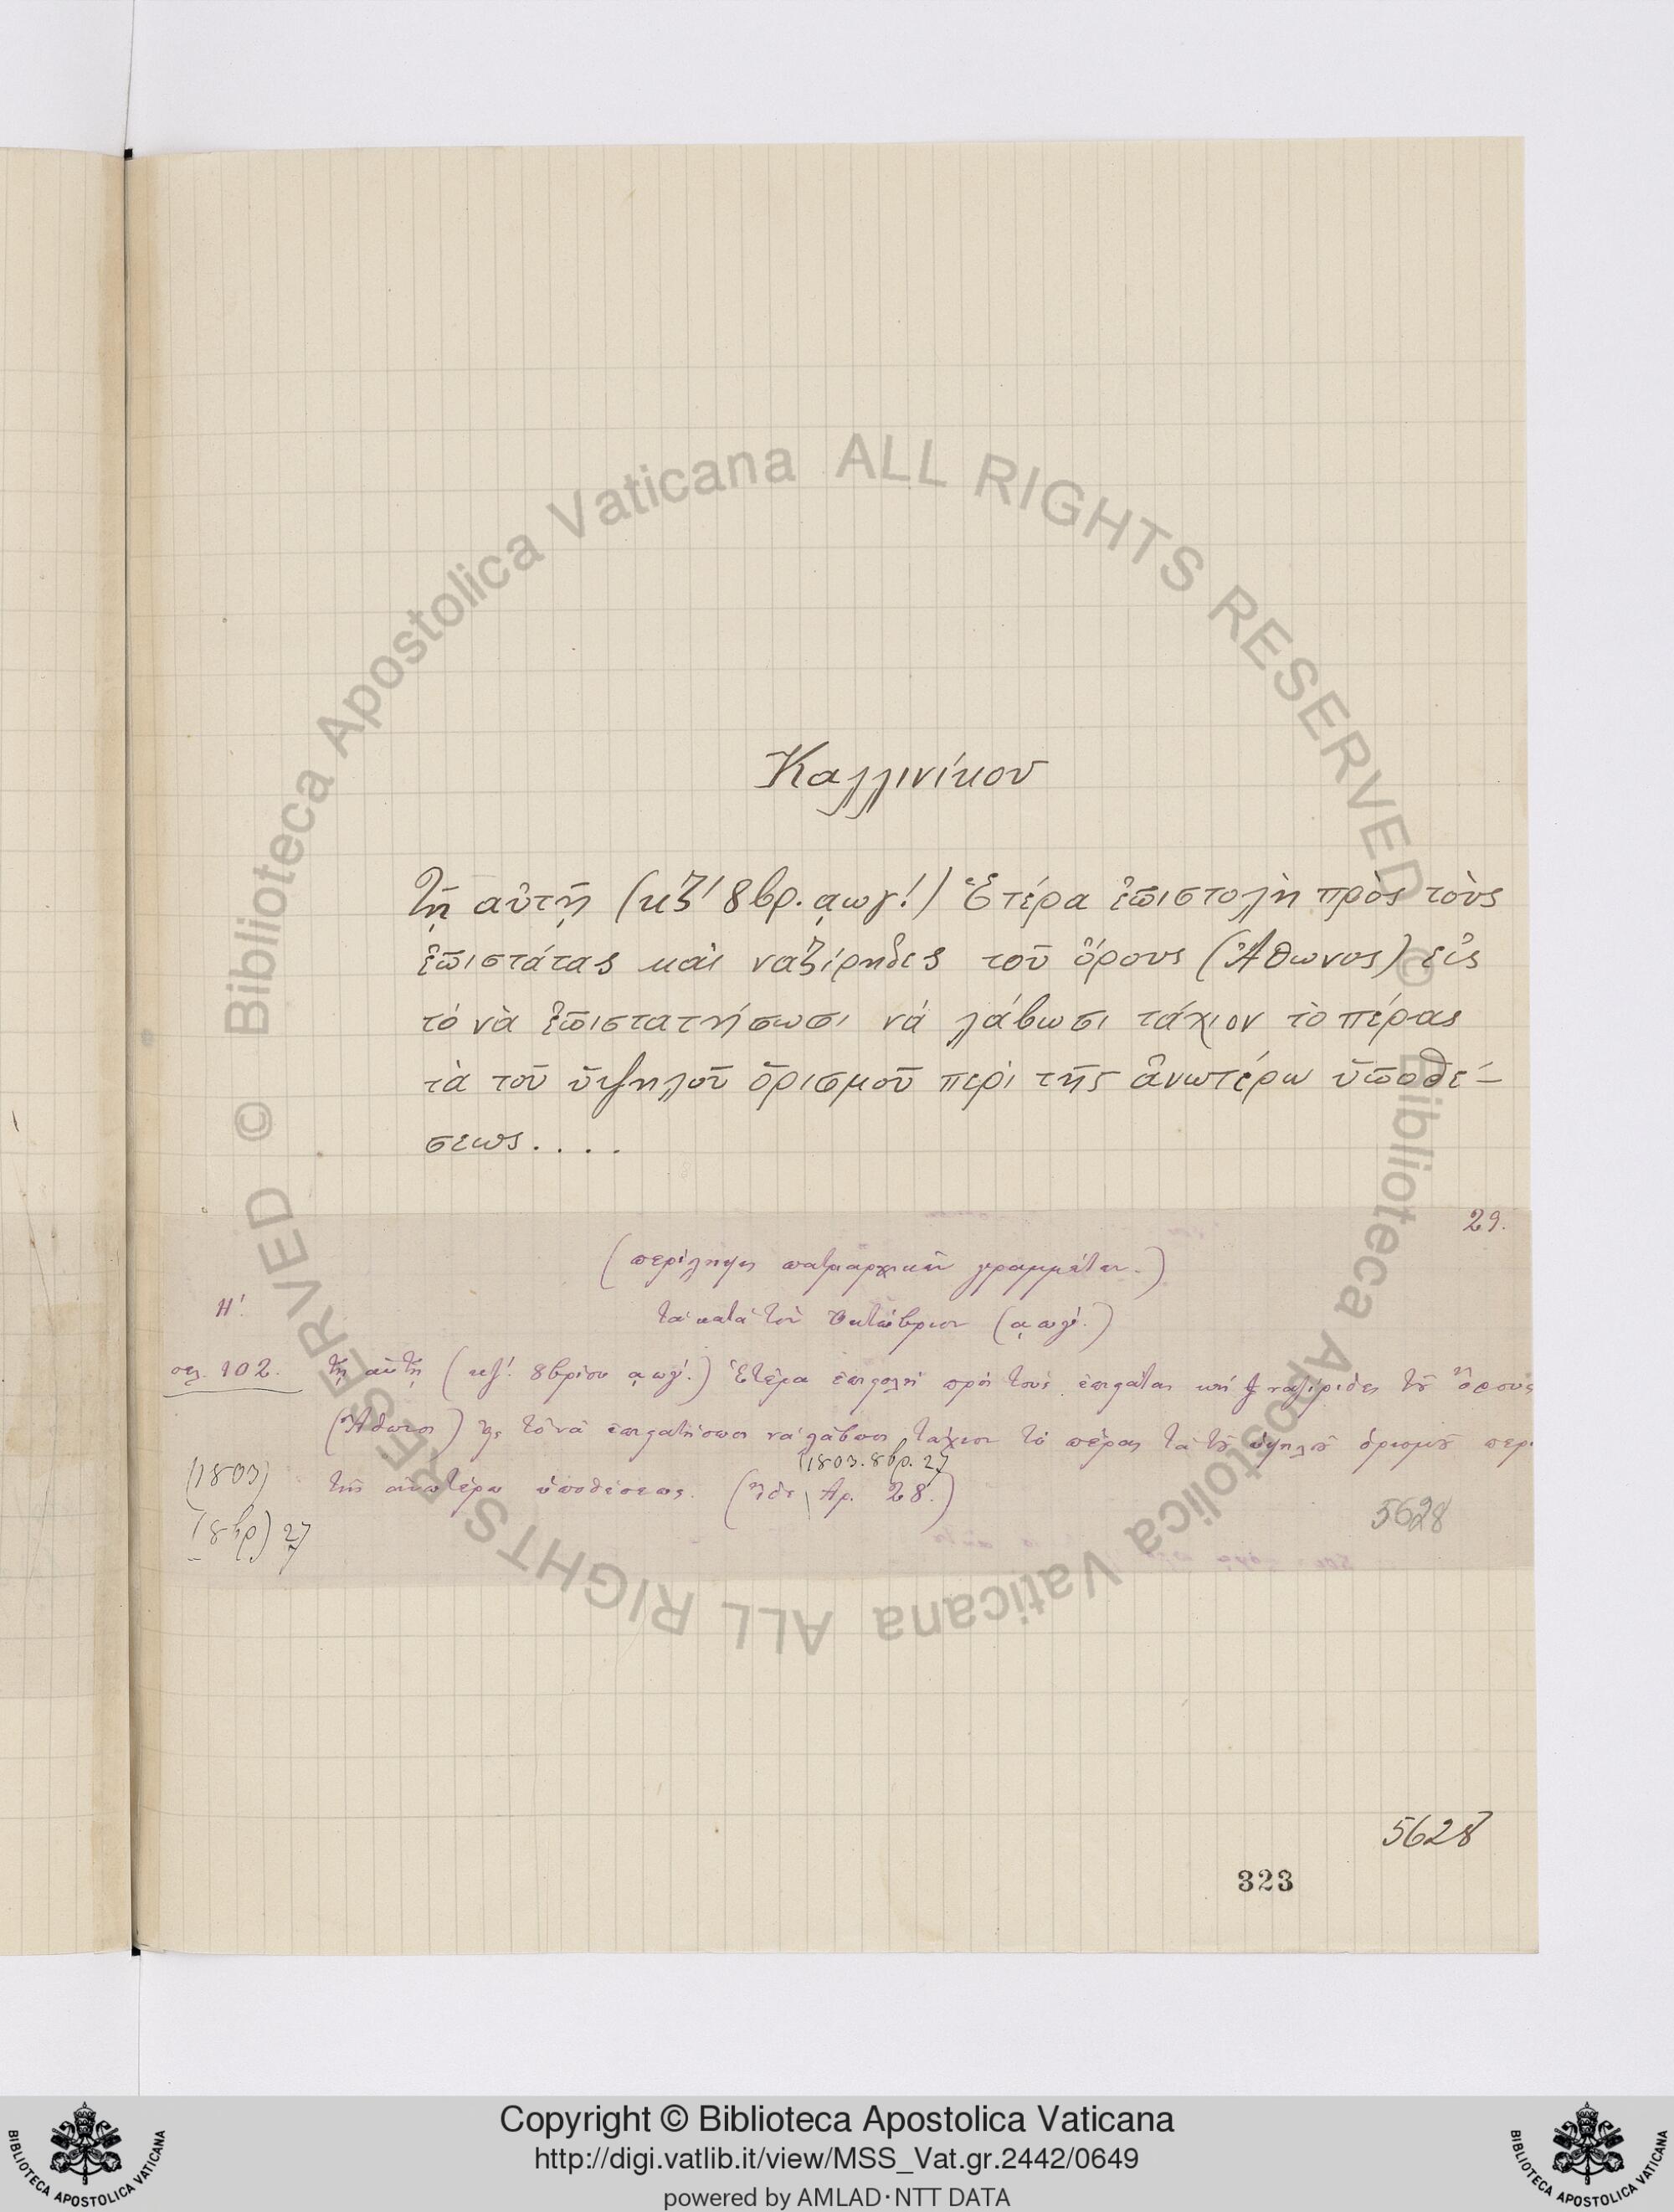 Καλλινίκου
Τῇ αὐτῇ (κζ' 8βρ. ͵αωγ'.) Ἑτέρα ἐπιστολὴ πρὸς τοὺς
ἐπιστάτας καὶ ναζίρηδες τοῦ ὄρους (Ἄθωνος) εἰς
τό νὰ ἐπιστατήσωσι νά λάβωσι τάχιον τὸ πέρας
τὰ τοῦ ὑψηλοῦ ὁρισμοῦ περὶ τῆς ἀνωτέρω ὑποθέ-
σεως....
29.
(περίληψις πατριαρχικῶν γραμμάτων.)
Η'.
τὰ κατὰ τὸν Ὀκτώβριον (͵αωγ'.)
σελ. 102. τῇ αὐτῇ (κζ'. 8βρίου ͵αωγ'.) Ἑτέρα ἐπιστολὴ πρὸς τοὺς ἐπιστάτας καὶ ναζίριδες τοῦ ὄρους
(Ἄθωνος) εἰς τὸ νὰ ἐπιστατήσωσι νὰ λάβωσι τάχιον τὸ πέρας τὰ τοῦ ὑψηλοῦ ὁρισμοῦ περὶ
1803. 8βρ. 27
(1803) τῆς ἀνωτέρω ὑποθέσεως. (Ἴδε Ἀρ. 28.)
(8βρ) 27
5628
5628
323
© Biblioteca Apostolica Vaticana ALL RIGHTS RESERVED
© Biblioteca Apostolica Vaticana ALL RIGHTS RESERVED
Copyright © Biblioteca Apostolica Vaticana
http://digi.vatlib.it/view/MSS_Vat.gr.2442/0649
powered by AMLAD·NTT DATA
BIBLIOTECA APOSTOLICA VATICANA
BIBLIOTECA APOSTOLICA VATICANA